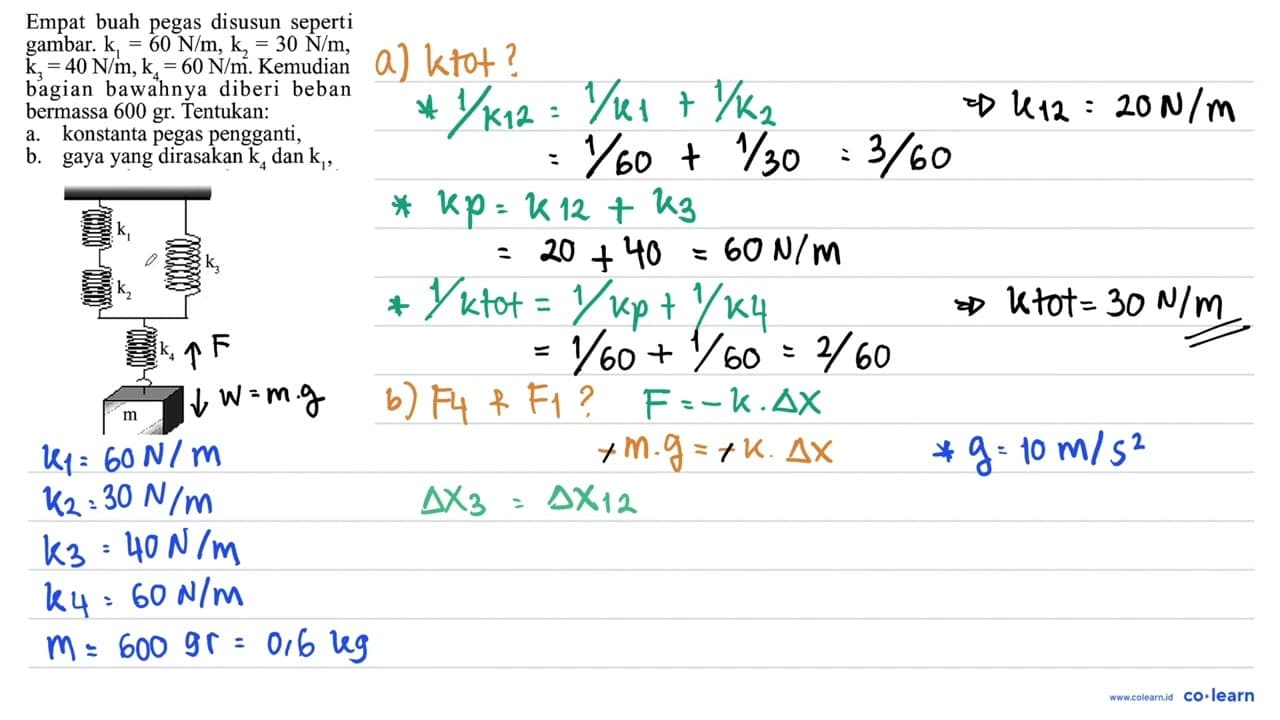 Empat buah pegas disusun seperti
gambar. k₁ = 60 N/m, k₂ = 30 N/m,
k₃ = 40 N/m, k₄ = 60 N/m. Kemudian
bagian bawahnya diberi beban
bermassa 600 gr. Tentukan:
a. konstanta pegas pengganti,
b. gaya yang dirasakan k₄ dan k₁,
k₁
k₂
k₃
k₄ ↑ F
m ↓ W = m.g
k1 = 60 N/m
k2 = 30 N/m
k3 = 40 N/m
k4 = 60 N/m
m = 600 gr = 0,6 kg
a) ktot?
* 1/k12 = 1/k1 + 1/k2 ⇒ k12 = 20 N/m
= 1/60 + 1/30 = 3/60
* kp = k12 + k3
= 20 + 40 = 60 N/m
* 1/ktot = 1/kp + 1/k4 ⇒ ktot = 30 N/m
= 1/60 + 1/60 = 2/60
b) F4 & F1? F = -k.ΔX
+m.g = +k.ΔX * g = 10 m/s²
ΔX3 = ΔX12
www.colearn.id co·learn